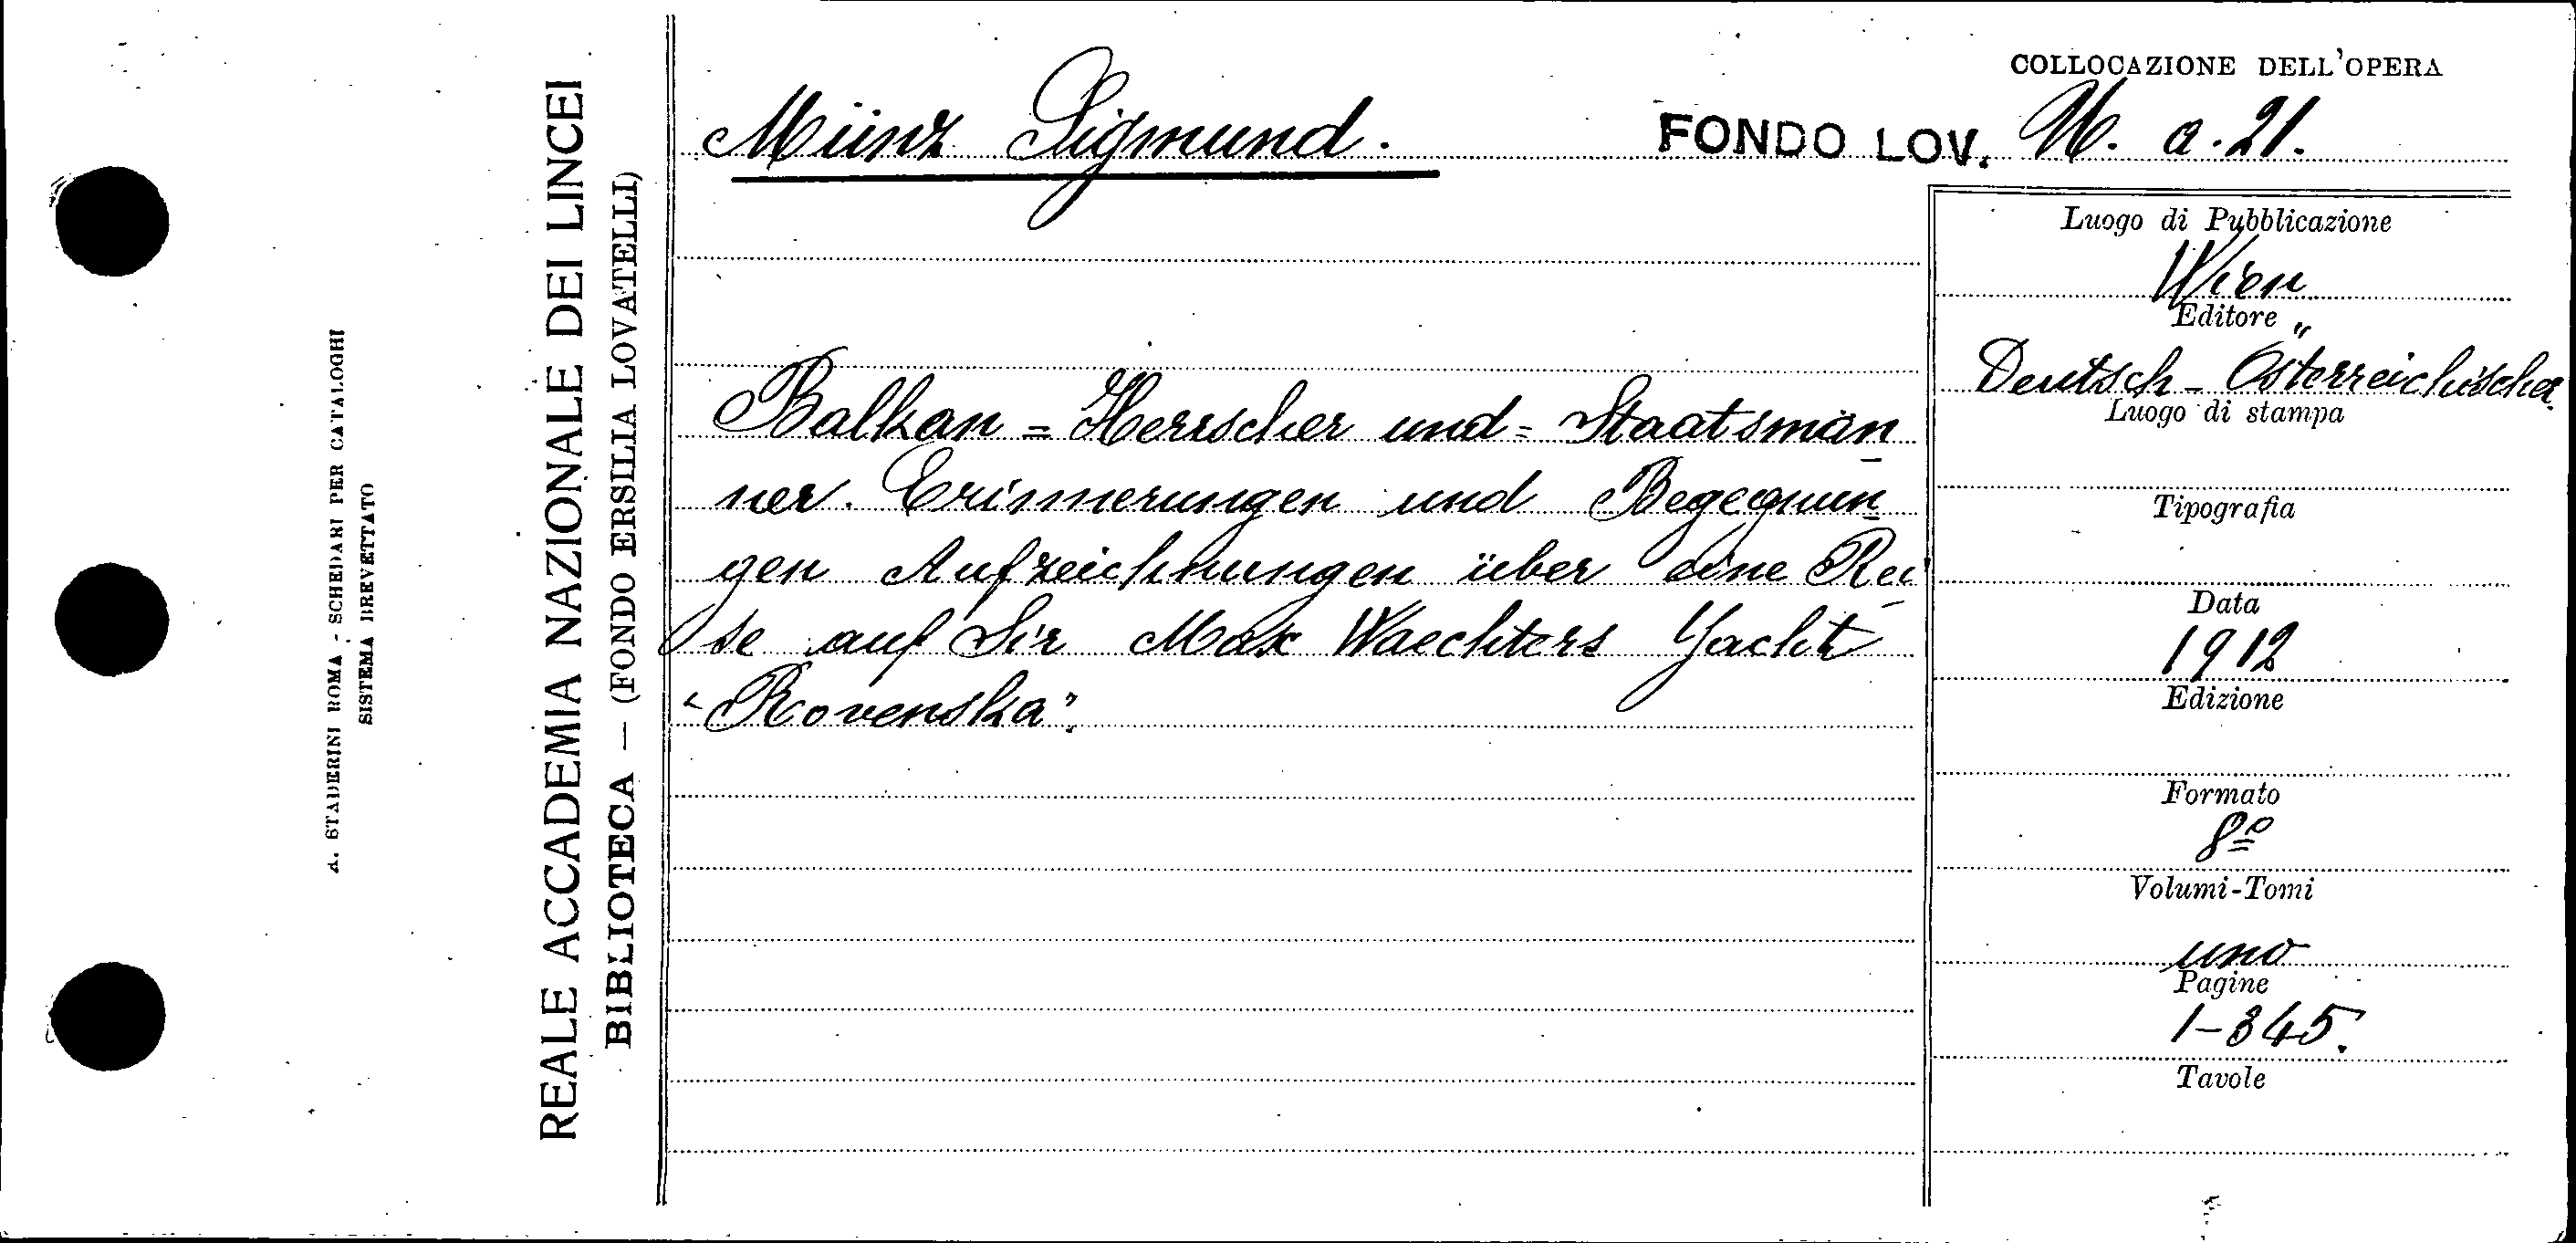 COLLOCAZIONE DELL'OPERA
Münz Sigmund.
FONDO LOV. U. a. 21.
Balkan = Herrscher und = Staatsmän
ner. Erinnerungen und Begegnun
gen Aufzeichnungen über eine Rei
se auf Sir Max Waechters Yacht
"Rovenska".
Luogo di Pubblicazione
Wien
Editore
Deutsch - Österreichischer
Luogo di stampa
Tipografia
Data
1912
Edizione
Formato
8º
Volumi-Tomi
uno
Pagine
1-345.
Tavole
REALE ACCADEMIA NAZIONALE DEI LINCEI
BIBLIOTECA — (FONDO ERSILIA LOVATELLI)
A. STADERINI ROMA - SCHEDARI PER CATALOGHI
SISTEMA BREVETTATO